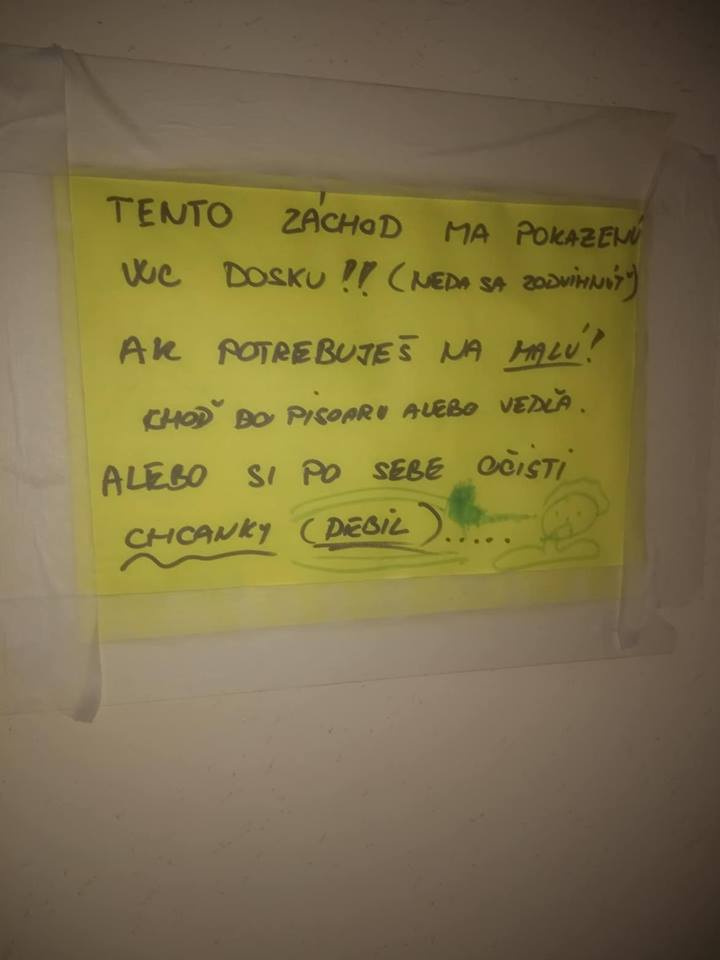 TENTO ZÁCHOD MA POKAZENÚ
WC DOSKU!! (NEDA SA ZODVIHNÚŤ)
AK POTREBUJEŠ NA MALÚ!
CHOĎ DO PISOARU ALEBO VEDĽA.
ALEBO SI PO SEBE OČISTI
CHCANKY (DEBIL).....